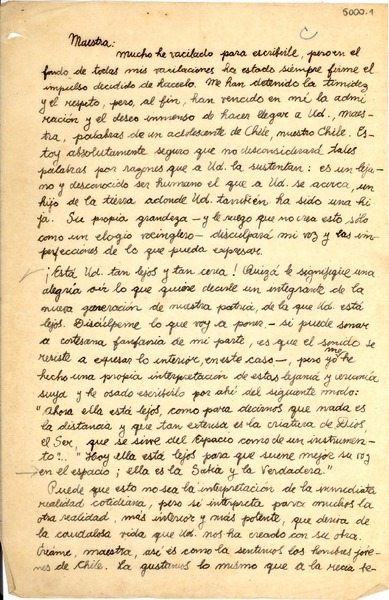 5000.1
Maestra:
mucho he vacilado para escribirle, pero en el
fondo de todas mis vacilaciones ha estado siempre firme el
impulso decidido de hacerlo. Me han detenido la timidez
y el respeto, pero, al fin, han vencido en mí la admi-
ración y el deseo inmenso de hacer llegar a Ud., maes-
tra, palabras de un adolescente de Chile, nuestro Chile. Es-
toy absolutamente seguro que no desconsiderará tales
palabras por razones que a Ud. la sustentan: es un leja-
no y desconocido ser humano el que a Ud. se acerca, un
hijo de la tierra adonde Ud. también ha sido una hi-
ja. Su propia grandeza — y le ruego que no crea esto sólo
como un elogio vocinglero — disculpará mi voz y las im-
perfecciones de lo que pueda expresar.
¡Está Ud. tan lejos y tan cerca! Quizá le signifique una
alegría oír lo que quiere decirle un integrante de la
nueva generación de nuestra patria, de la que Ud. está
lejos. Discúlpeme lo que voy a poner — si puede sonar
a cortesana fanfarria de mi parte, es que el sonido se
resiste a expresar lo interior, en este caso —, pero yo me he
hecho una propia interpretación de estas lejanía y cercanía
suya y he osado escribirlo por ahí del siguiente modo:
"Ahora ella está lejos, como para decirnos que nada es
la distancia y que tan extensa es la criatura de Dios,
el Ser, que se sirve del Espacio como de un instrumen-
to"... "Hoy ella está lejos para que suene mejor su voz
en el espacio; ella es la Sabia y la Verdadera."
Puede que esto no sea la interpretación de la inmediata
realidad cotidiana, pero sí interpreta para muchos la
otra realidad, más interior y más potente, que deriva de
la caudalosa vida que Ud. nos ha creado con su obra.
Créame, maestra, así es como la sentimos los hombres jóve-
nes de Chile. La gustamos lo mismo que a la recia te-